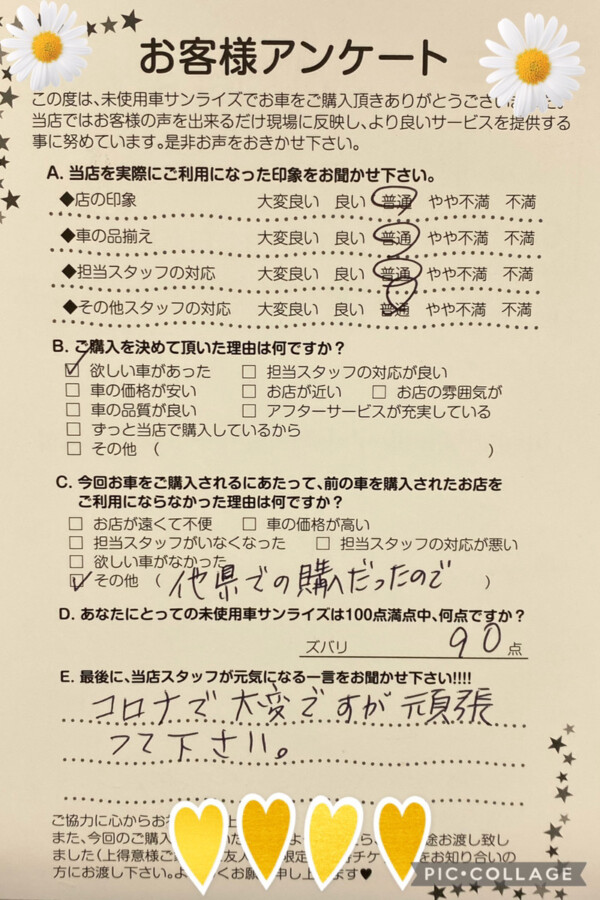 お客様アンケート
この度は、未使用車サンライズでお車をご購入頂きありがとうござい
当店ではお客様の声を出来るだけ現場に反映し、より良いサービスを提供する
事に努めています。是非お声をおきかせ下さい。
A. 当店を実際にご利用になった印象をお聞かせ下さい。
◆店の印象 大変良い 良い 普通 やや不満 不満
◆車の品揃え 大変良い 良い 普通 やや不満 不満
◆担当スタッフの対応 大変良い 良い 普通 やや不満 不満
◆その他スタッフの対応 大変良い 良い 普通 やや不満 不満
B. ご購入を決めて頂いた理由は何ですか？
☑ 欲しい車があった □ 担当スタッフの対応が良い
□ 車の価格が安い □ お店が近い □ お店の雰囲気が
□ 車の品質が良い □ アフターサービスが充実している
□ ずっと当店で購入しているから
□ その他 （ ）
C. 今回お車をご購入されるにあたって、前の車を購入されたお店を
ご利用にならなかった理由は何ですか？
□ お店が遠くて不便 □ 車の価格が高い
□ 担当スタッフがいなくなった □ 担当スタッフの対応が悪い
□ 欲しい車がなかった
☑ その他 （ 他県での購入だったので ）
D. あなたにとっての未使用車サンライズは100点満点中、何点ですか？
ズバリ 90 点
E. 最後に、当店スタッフが元気になる一言をお聞かせ下さい!!!!
コロナで大変ですが頑張
って下さい。
ご協力に心からお
また、今回のご購入 お渡し致し
ました（上得意様ご 友人 限定 チケ をお知り合いの
方にお渡し下さい。よ くお願 申し上 ます♥
PIC•COLLAGE